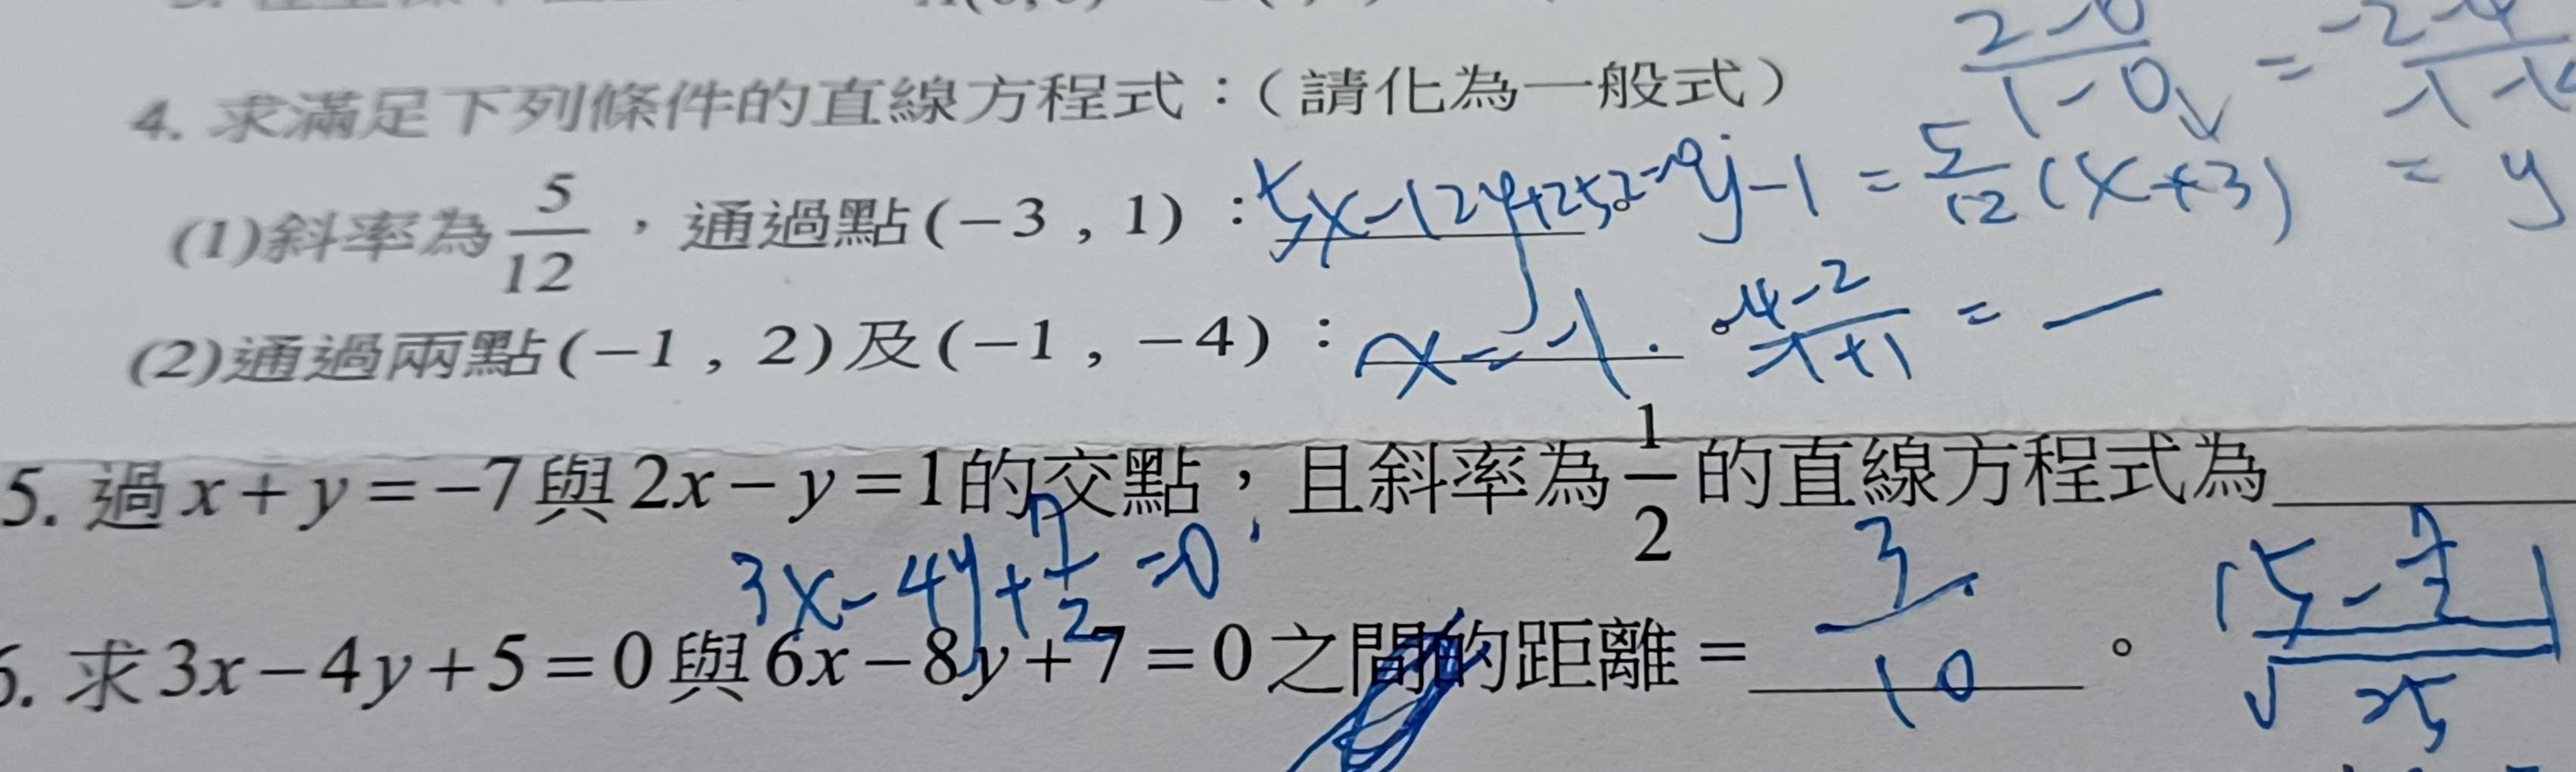 4. 求滿足下列條件的直線方程式：（請化為一般式）
(1)斜率為 5/12 ，通過點(−3 , 1) : 5x-12y+27=0 y-1 = 5/12 (x+3) = y
(2)通過兩點(−1 , 2)及(−1 , −4) : x=-1. -4-2/-1+1 = —
5. 過 x + y = −7 與 2x − y = 1 的交點，且斜率為 1/2 的直線方程式為
3x-4y+7/2=0
6. 求 3x − 4y + 5 = 0 與 6x − 8y + 7 = 0 之間的距離 = 3/10 。 |5-7/2|/√25